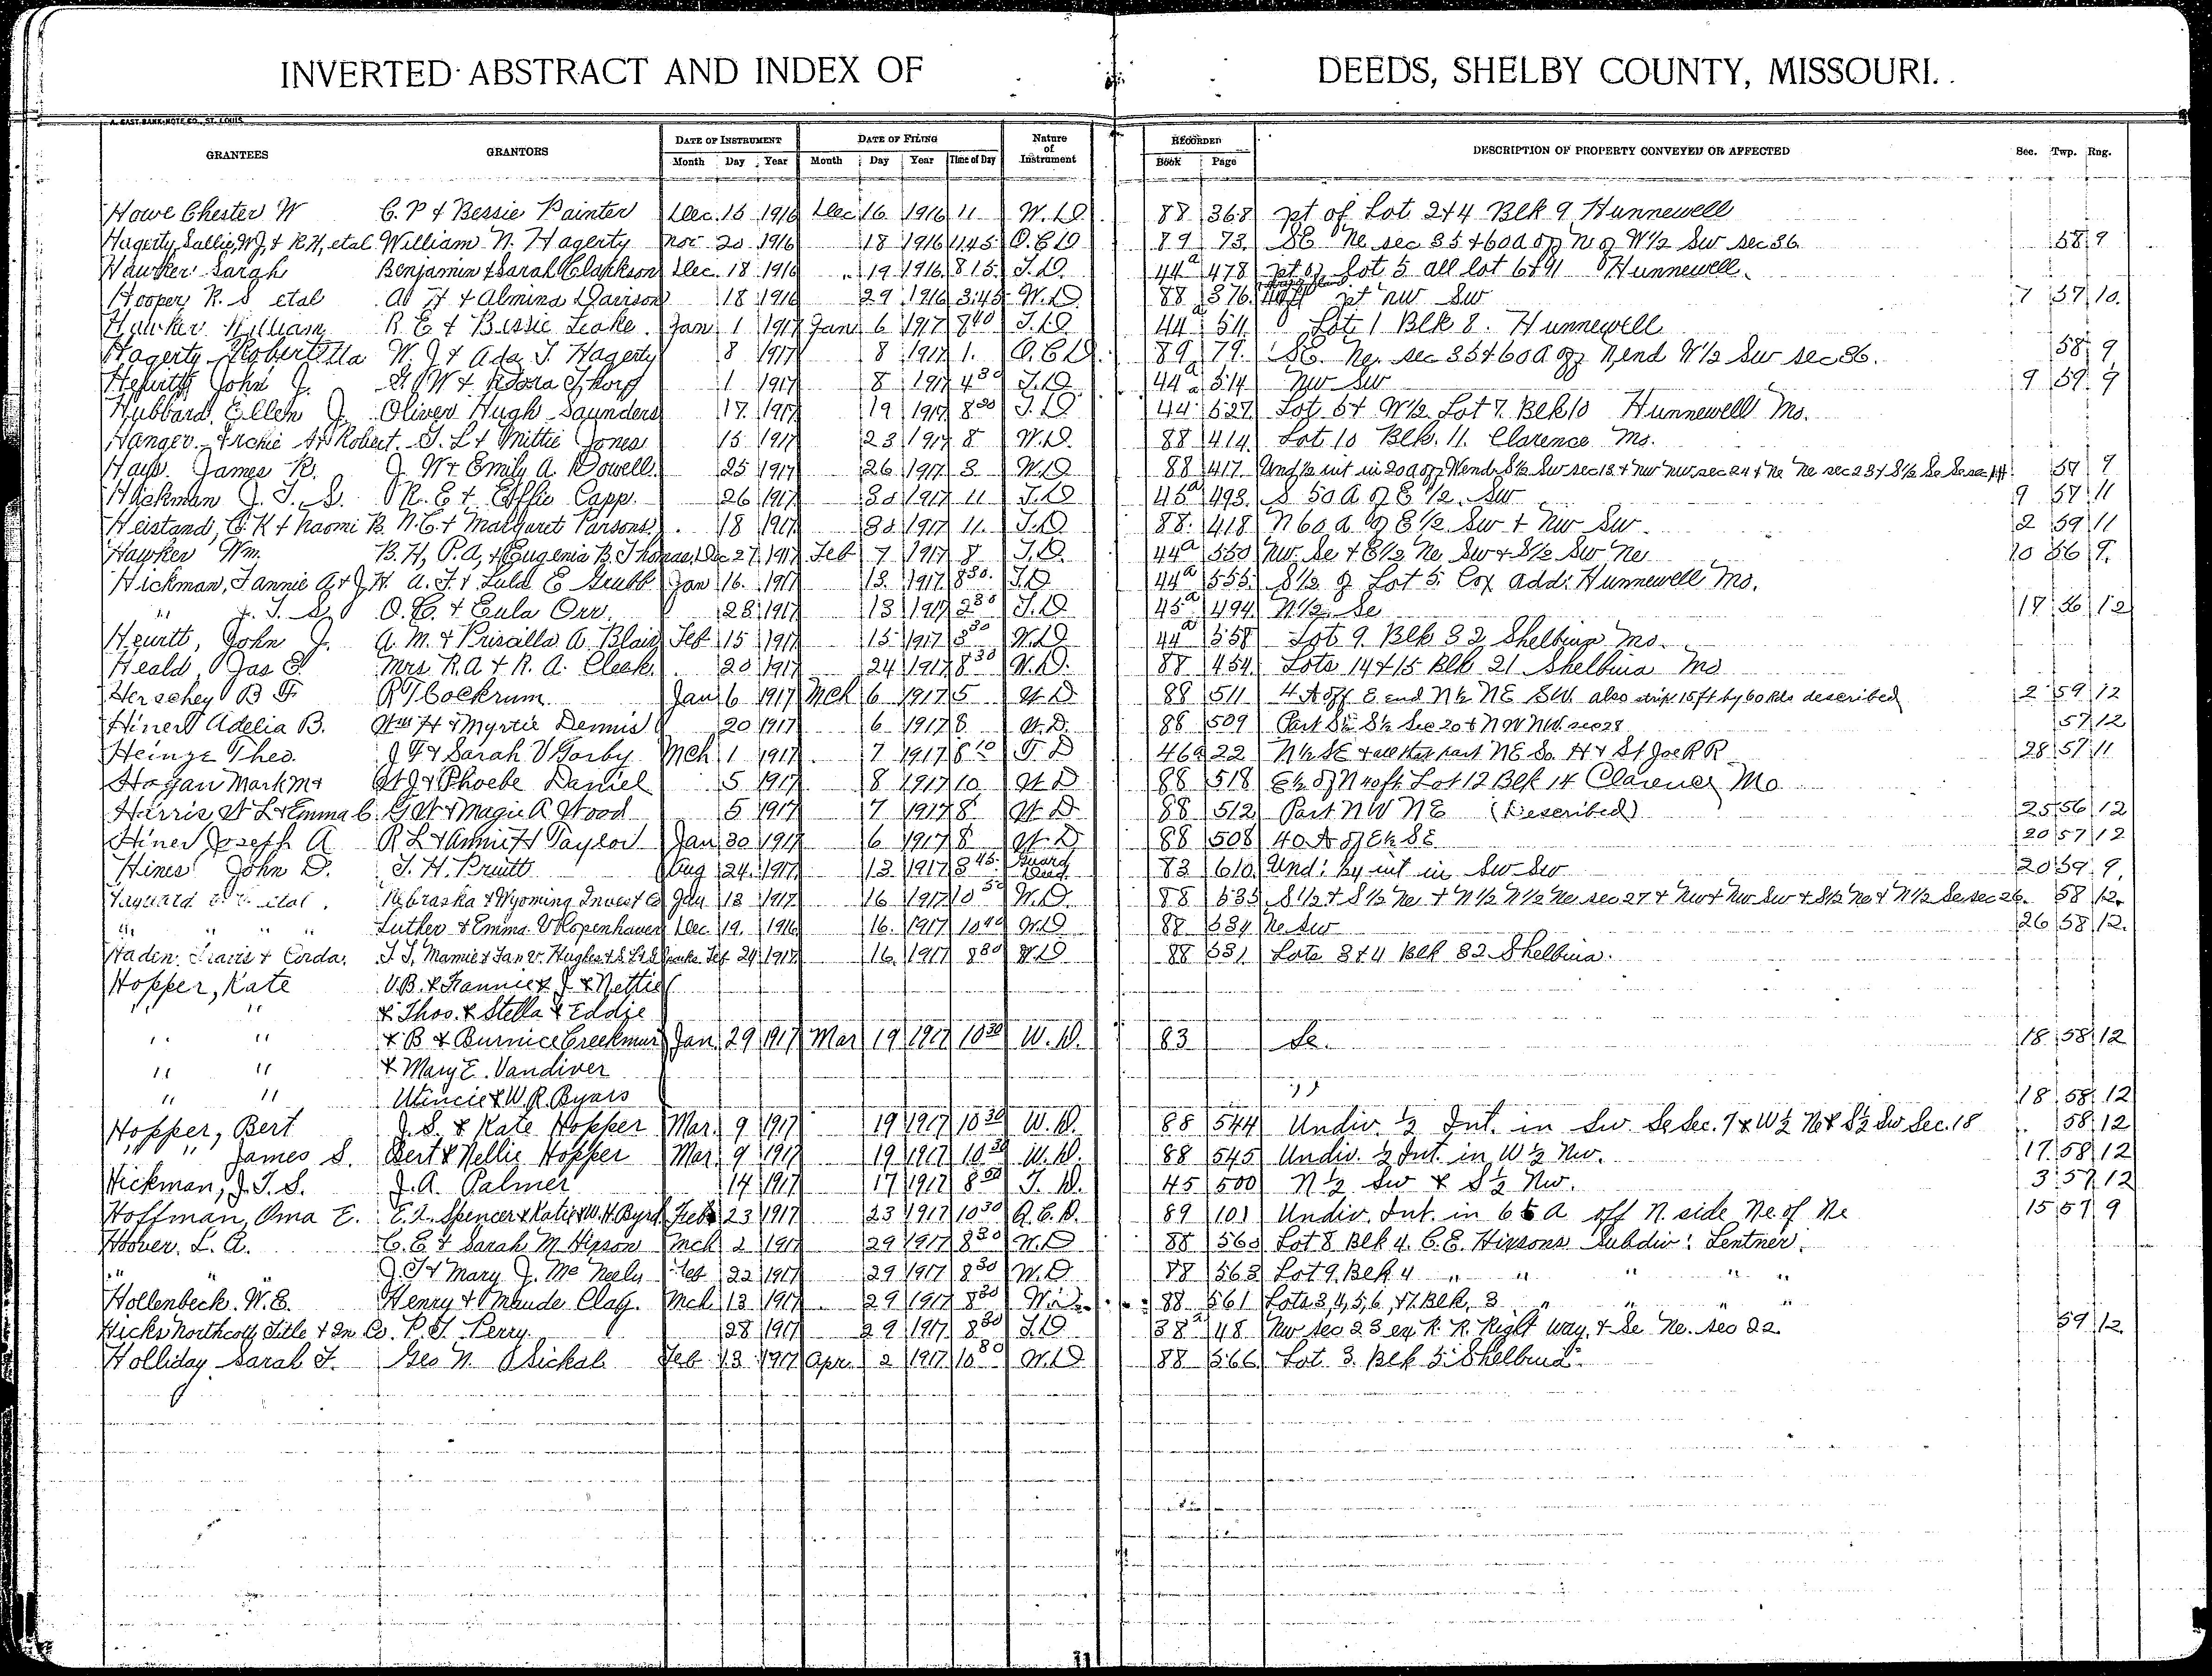 INVERTED ABSTRACT AND INDEX OF DEEDS, SHELBY COUNTY, MISSOURI.
A. GAST BANK NOTE CO., ST. LOUIS.
GRANTEES GRANTORS DATE OF INSTRUMENT Month Day Year DATE OF FILING Month Day Year Time of Day Nature of Instrument RECORDED Book Page DESCRIPTION OF PROPERTY CONVEYED OR AFFECTED Sec. Twp. Rng.
Howe Chester W C. P & Bessie Painter Dec. 15 1916 Dec 16 1916 11 W. D. 88 368 pt of Lot 2 & 4 Blk 9 Hunnewell
Hagerty, Sallie, W J, & R H, etal William N. Hagerty Nov 20 1916 18 1916 11.45 Q. C D 89 73 SE Ne sec 35 & 60a off N of W½ Sw sec 36 58 9
Hawker Sarah Benjamin & Sarah Clarkson Dec. 18 1916 " 19 1916 8 15 T. D. 44a 478 pt of Lot 5 all lot 6 & 91 Hunnewell.
Hooper R. S etal A H & Almina Davison 18 1916 29 1916 3:45 W. D. 88 376 pt NW Sw 7 57 10
Hawker William R E & Bessie Leake Jan 1 1917 Jan 6 1917 8 40 T. D 44a 511 Lot 1 Blk 8. Hunnewell
Hagerty Robert Ella W. J & Ada J. Hagerty 8 1917 8 1917 1. Q. C D. 89 79 SE. Ne. sec 35 & 60a off N. end W½ Sw sec 36. 58 9
John J. 1 1917 8 1917 4 30 T. D. 44a 514 Nw Sw 9 59 9
Hubbard, Ellen J. Oliver Hugh Saunders 17 1917 19 1917 8 30 T. D. 44 527 Lot 6 & W½ Lot 7. Blk 10 Hunnewell Mo.
Hanger Archie & Robert T. L & Mittie Jones 15 1917 23 1917 8 W. D. 88 414 Lot 10 Blk. 11. Clarence Mo.
Hays James R. J. W & Emily A. Dowell. 25 1917 26 1917 3 W. D 88 417 Und ½ int in 20a off W end S½ Sw sec 13 & Nw Nw sec 24 & Ne Ne sec 23 & S½ Se Se sec 14 57 9
Hickman J. T. S. R. E & Effie Capp. 26 1917 30 1917 11 T. D 45a 493 S 50 A of E½ Sw 9 57 11
Heistand, C. K & Naomi B. N. C. & Margaret Parsons 18 1917 30 1917 11. T. D 88 418 N 60 a of E½ Sw & Nw Sw 2 59 11
Hawker Wm. B. H, P. A, & Eugenia B. Thomas Dec 27 1917 Feb 7 1917 8 T. D. 44a 550 Nw Se & E½ Ne Sw & S½ Sw Ne 10 56 9
Hickman, Fannie A & J. H. A. J. & Lula E Grubb Jan 16 1917 13 1917 8 30 T. D 44a 555 S½ of Lot 5. Cox add. Hunnewell Mo.
" J. T. S. O. C. & Eula Orr. 28 1917 13 1917 2 30 T. D 45a 494 N½ Se 17 56 12
John J. A. M. & Priscilla A. Blair Feb 15 1917 15 1917 3 30 W. D 44a 558 Lot 9. Blk 32 Shelbina Mo.
Heald, Jas E. Mrs R. A & R. A. Cleek. 20 1917 24 1917 8 30 W. D. 88 454 Lots 14 & 15 Blk 21 Shelbina Mo
Herschey B F R T Cockrum Jan 6 1917 Mch 6 1917 5 W. D 88 511 4 A off E end N½ NE SW also strip 15 ft by 60 Rds described 2 59 12
Hiner Adelia B. Wm H & Myrtie Dennis 20 1917 6 1917 8 W. D. 88 509 Part S½ S½ Sec 20 & NW NW sec 28 57 12
Heinze Theo. J F & Sarah V Gorby Mch 1 1917 7 1917 8 10 T. D 46a 22 N½ SE & all that part NE So. H & St Joe R R 28 57 11
Hogan Mark M & W J & Phoebe Daniel 5 1917 8 1917 10 W. D 88 518 E½ of N 40 ft Lot 12 Blk 14 Clarence Mo
Harris, W L & Emma C. G W & Magie A Wood 5 1917 7 1917 8 W. D 88 512 Part NW NE (Described) 25 56 12
Hiner Joseph A R L & Annie H Taylor Jan 30 1917 6 1917 8 W. D 88 508 40 A of E½ SE 20 57 12
Hines John D. T. H. Pruitt Aug 24 1917 13 1917 8 45 Guard Deed 83 610 Und. int in Sw Sw 20 59 9
etal. Nebraska & Wyoming Invest Co Jan 13 1917 16 1917 10 50 W. D. 88 535 S½ & S½ Ne & N½ N½ Ne sec 27 & Nw & Nw Sw & S½ Ne & N½ Se sec 26. 58 12
" " " " Luther & Emma V Kopenhaver Dec. 19. 1916 16 1917 10 40 W. D 88 534 Ne Sw 26 58 12
Haden, Travis & Corda. T. J, Mamie & Hughes Feb 24 1917 16 1917 8 30 W. D 88 531 Lots 3 & 4 Blk 32 Shelbina.
Hopper, Kate V. B. & Fannie & J. & Nettie
" " & Thos. & Stella & Eddie
" " & B & Burnice Creekmur Jan 29 1917 Mar 19 1917 10 30 W. D. 83 Se. 18 58 12
" " & Mary E. Vandiver
" " & W. R. Byars " 18 58 12
Hopper, Bert J. S. & Kate Hopper Mar. 9 1917 19 1917 10 30 W. D. 88 544 Undiv. ½ Int. in Sw. Se Sec. 7 & W½ Ne & S½ Sw Sec. 18 58 12
" " James S. Bert & Nellie Hopper Mar. 9 1917 19 1917 10 30 W. D. 88 545 Undiv. ½ Int. in W½ Nw. 17 58 12
Hickman, J. T. S. J. A. Palmer 14 1917 17 1917 8 50 T. D. 45 500 N½ Sw & S½ Nw. 3 57 12
Hoffman, Oma E. E. L. Spencer & Katie & W. H. Byrd Feb 23 1917 23 1917 10 30 Q. C. D. 89 101 Undiv. Int. in 65 A off N. side Ne of Ne 15 57 9
Hoover. L. A. C. E & Sarah M Hixson Mch 2 1917 29 1917 8 30 W. D 88 560 Lot 8 Blk 4. C. E. Hixsons Subdiv. Lentner.
" " J. T & Mary J. McNeely Feb 22 1917 29 1917 8 30 W. D. 88 563 Lot 9. Blk 4 " " " " "
Hollenbeck. W. E. Henry & Maude Clay. Mch 13 1917 29 1917 8 30 W. D. 88 561 Lots 3, 4, 5, 6, & 7. Blk. 3 " " " "
Hicks Northcott Title & In. Co. P. T. Perry. 28 1917 29 1917 8 30 T. D 38a 48 Nw sec 23 ex R. R. Right way, & Se Ne. sec 22. 59 12
Holliday Sarah T. Geo N. Feb 13 1917 Apr. 2 1917 10 80 W. D 88 566 Lot 3. Blk 5. Shelbina.